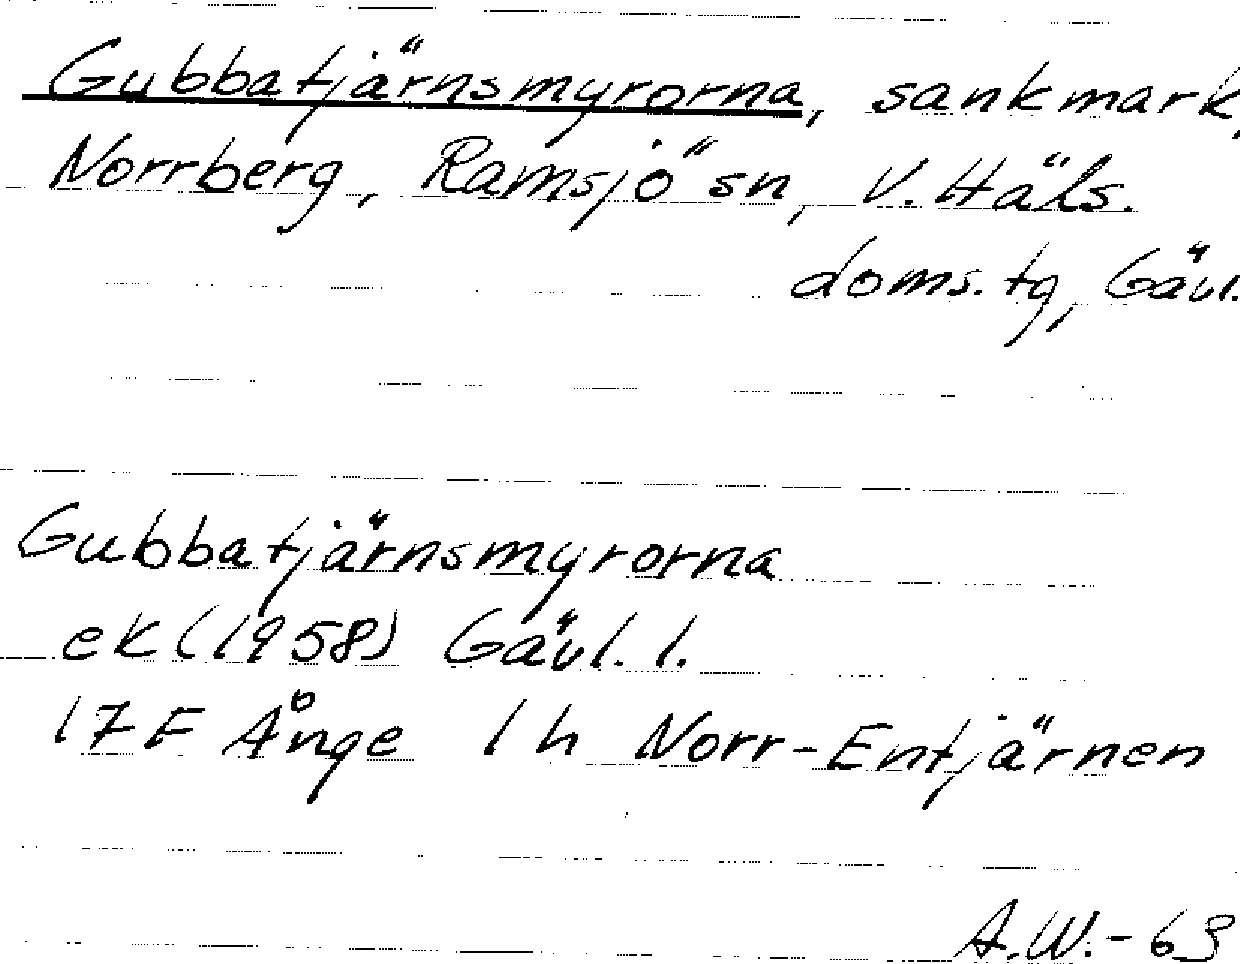 Gubbatjärnsmyrorna, sankmark,
Norrberg, Ramsjö sn, V. Häls.
doms. tg, Gävl.
Gubbatjärnsmyrorna
ek (1958) Gävl. l.
17F Ånge 1h Norr-Entjärnen
A.W.-63